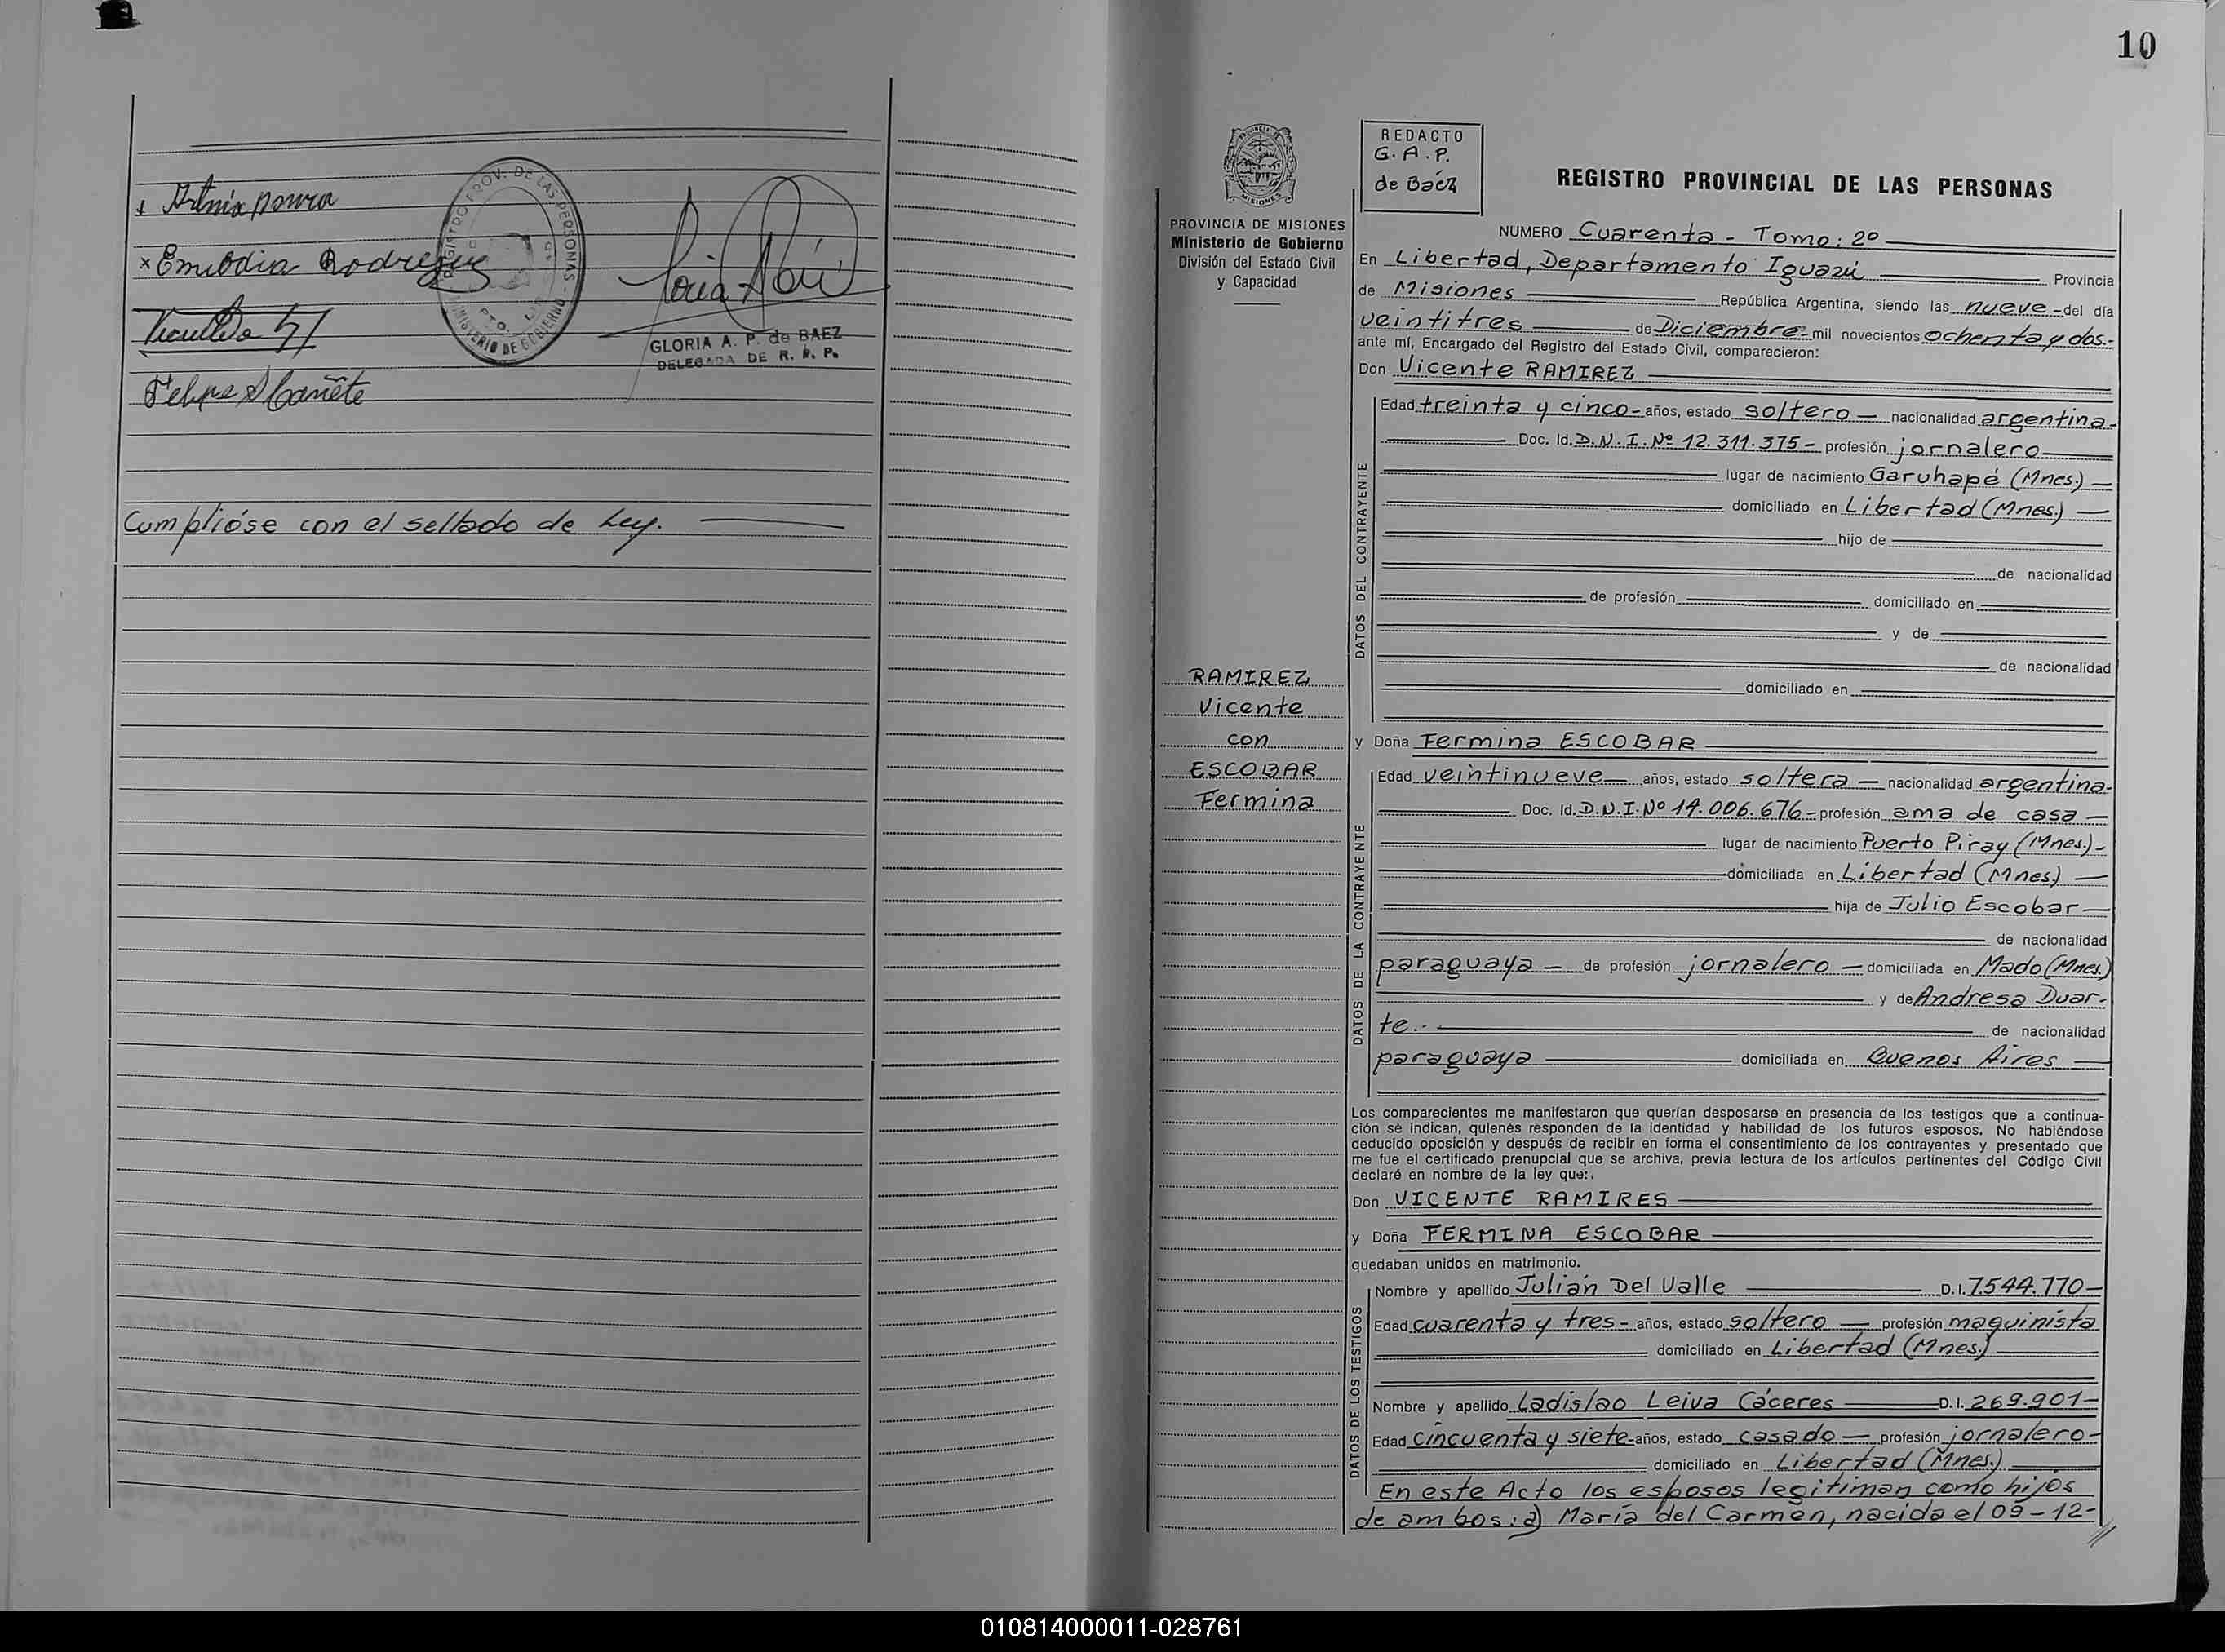 Emilodia Rodriguez
REGISTRO PROV. DE LAS PERSONAS
MINISTERIO DE GOBIERNO
GLORIA A. P. de BAEZ
DELEGADA DE R. P. P.
Felipe Cañete
Cumplióse con el sellado de Ley.
10
PROVINCIA DE MISIONES
Ministerio de Gobierno
División del Estado Civil
y Capacidad
RAMIREZ
Vicente
con
ESCOBAR
Fermina
REDACTO
G. A. P.
de Baéz
REGISTRO PROVINCIAL DE LAS PERSONAS
NUMERO Cuarenta - Tomo: 2º
En Libertad, Departamento Iguazú Provincia
de Misiones República Argentina, siendo las nueve - del día
veintitres de Diciembre - mil novecientos ochenta y dos.-
ante mí, Encargado del Registro del Estado Civil, comparecieron:
Don Vicente RAMIREZ
DATOS DEL CONTRAYENTE
Edad treinta y cinco - años, estado soltero — nacionalidad argentina-
Doc. Id. D.N.I. Nº 12.311.375 - profesión jornalero
lugar de nacimiento Garuhapé (Mnes.) —
domiciliado en Libertad (Mnes.) —
hijo de
de nacionalidad
de profesión domiciliado en
y de
de nacionalidad
domiciliado en
y Doña Fermina ESCOBAR
DATOS DE LA CONTRAYENTE
Edad veintinueve — años, estado soltera — nacionalidad argentina-
Doc. Id. D.N.I. Nº 14.006.676 - profesión ama de casa —
lugar de nacimiento Puerto Piray (Mnes.) -
domiciliada en Libertad (Mnes.) —
hija de Julio Escobar —
de nacionalidad
paraguaya — de profesión jornalero — domiciliada en Mado (Mnes.)
y de Andresa Duar-
te.- de nacionalidad
paraguaya domiciliada en Buenos Aires —
Los comparecientes me manifestaron que querían desposarse en presencia de los testigos que a continua-
ción se indican, quienes responden de la identidad y habilidad de los futuros esposos. No habiéndose
deducido oposición y después de recibir en forma el consentimiento de los contrayentes y presentado que
me fue el certificado prenupcial que se archiva, previa lectura de los artículos pertinentes del Código Civil
declaré en nombre de la ley que:
Don VICENTE RAMIRES
y Doña FERMINA ESCOBAR
quedaban unidos en matrimonio.
DATOS DE LOS TESTIGOS
Nombre y apellido Julián Del Valle D. I. 7.544.770 -
Edad cuarenta y tres - años, estado soltero — profesión maquinista
domiciliado en Libertad (Mnes.)
Nombre y apellido Ladislao Leiva Cáceres D. I. 269.901 -
Edad cincuenta y siete - años, estado casado — profesión jornalero -
domiciliado en Libertad (Mnes.)
En este Acto los esposos legitiman como hijos
de ambos: a) María del Carmen, nacida el 09-12-
010814000011-028761